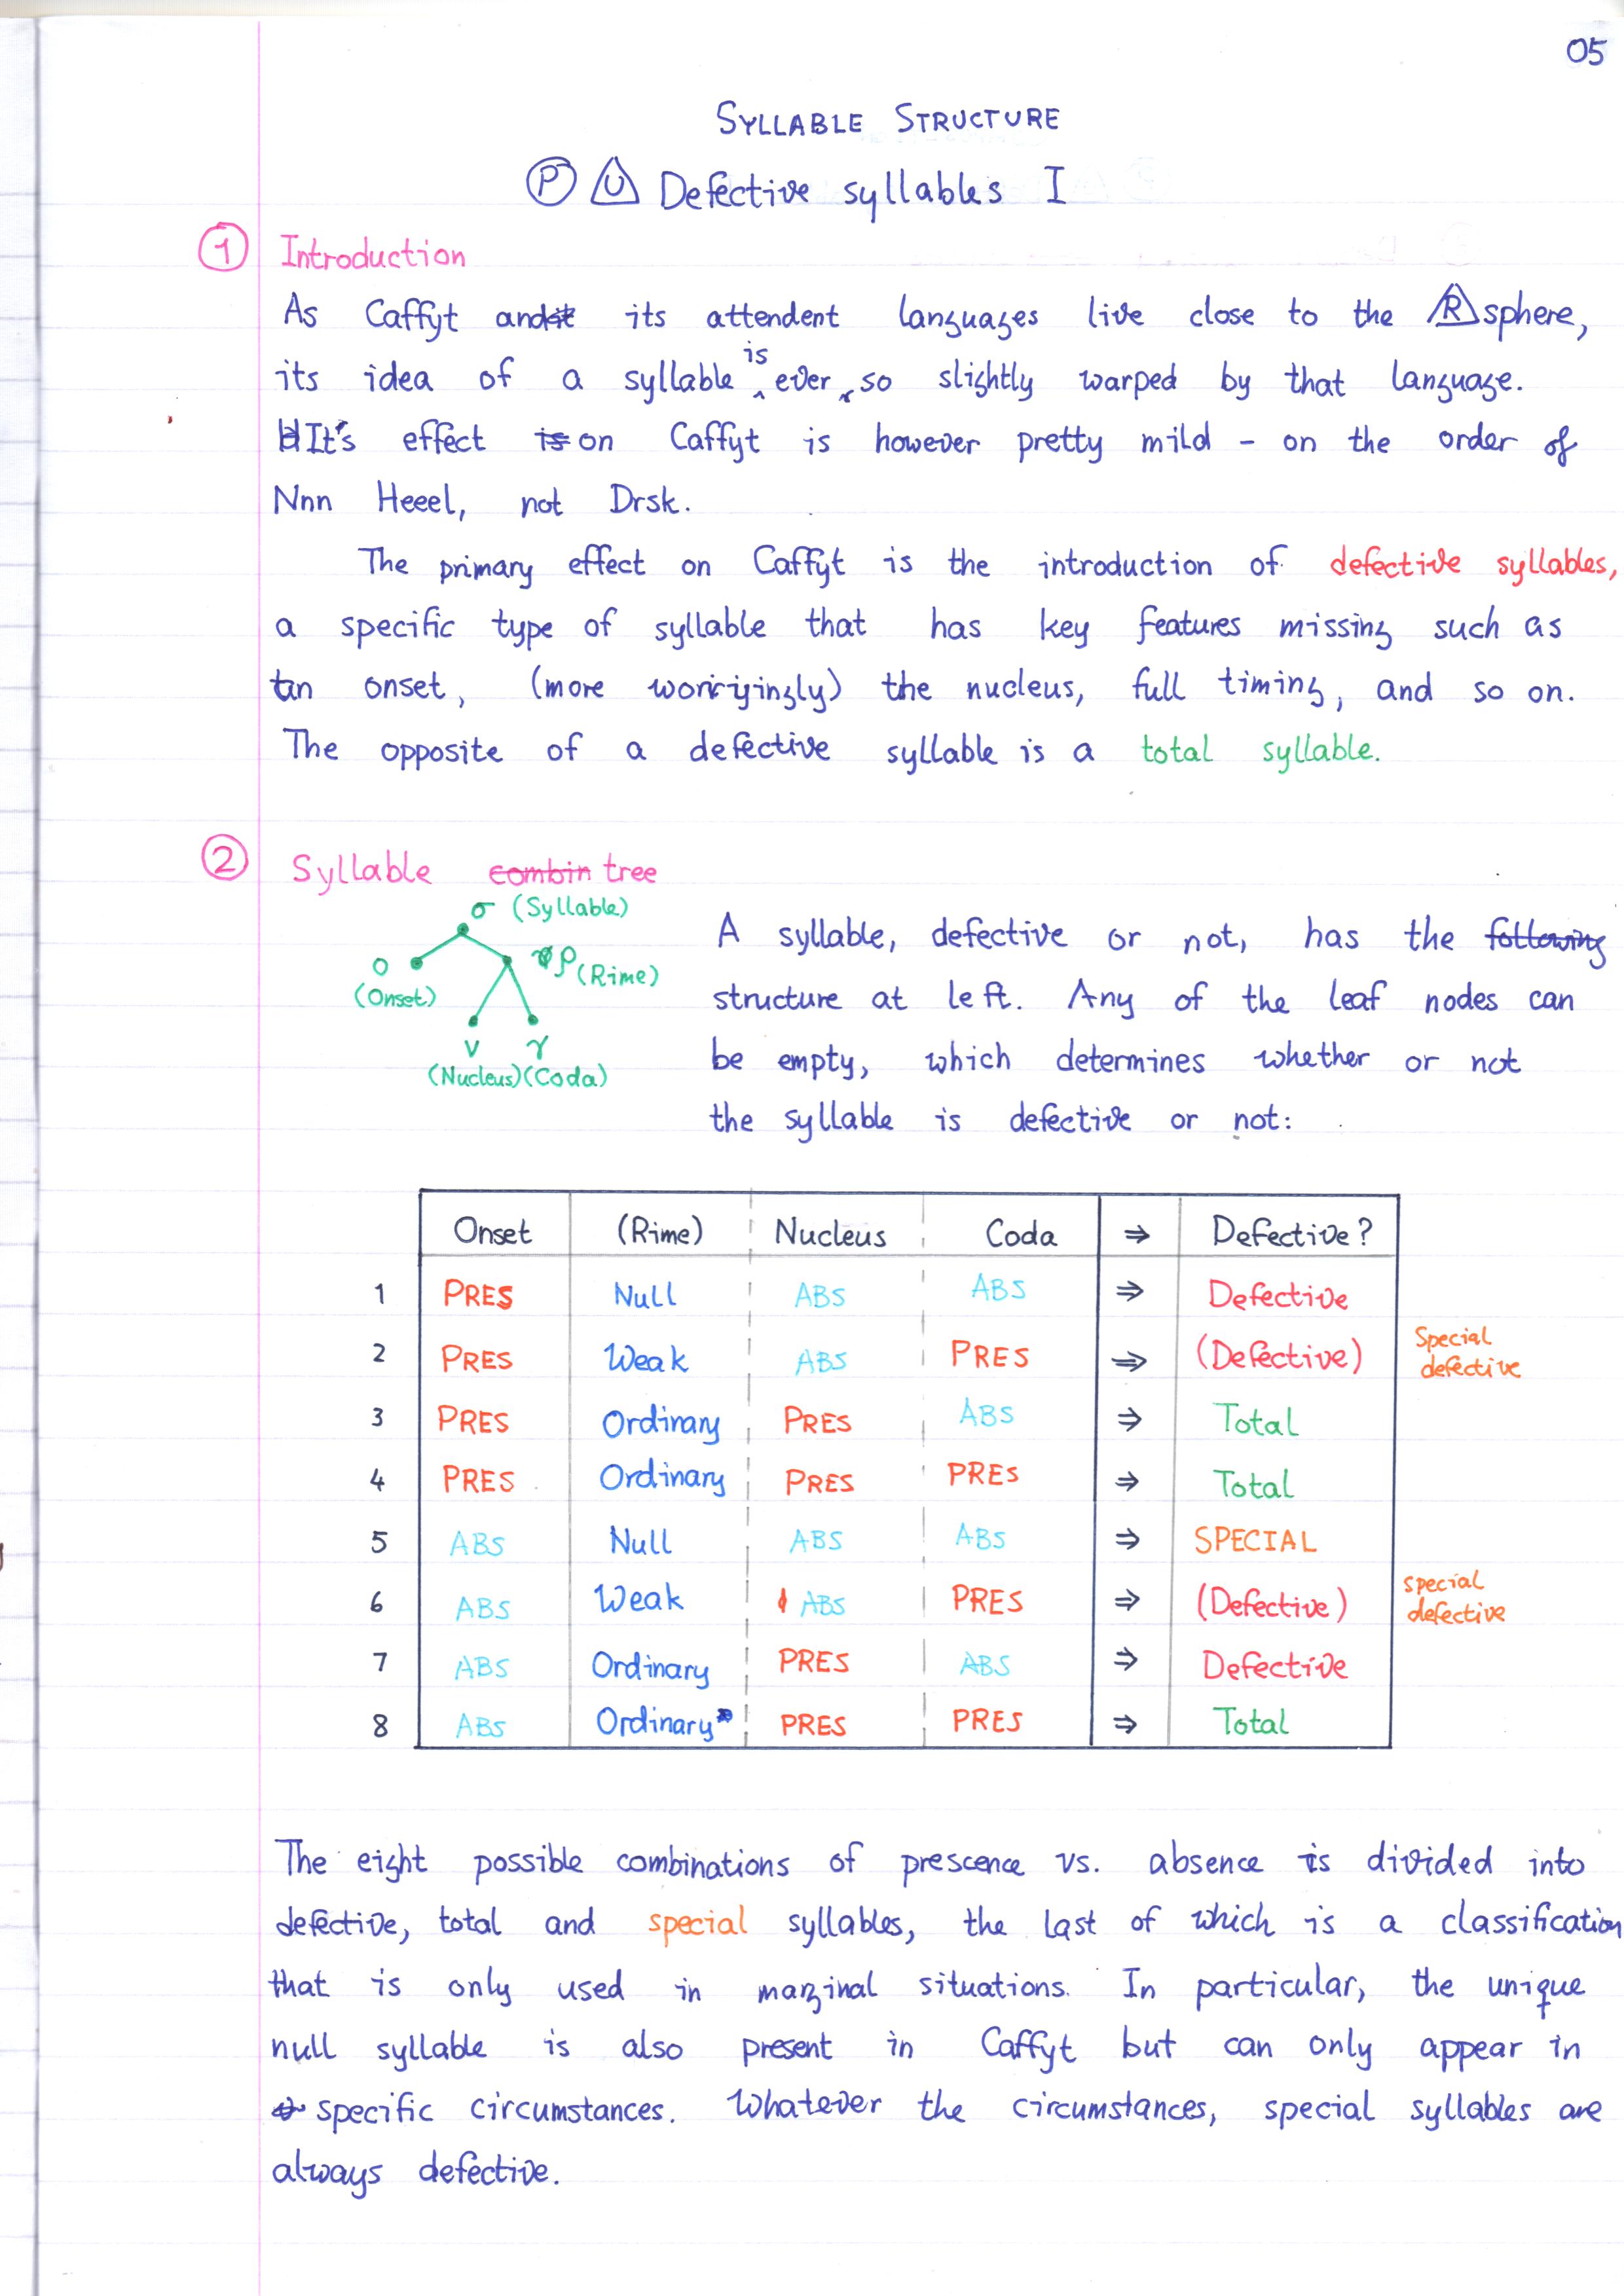 05
SYLLABLE STRUCTURE
P U Defective syllables I
1 Introduction
As Caffyt and its attendent languages live close to the R sphere,
its idea of a syllable is ever so slightly warped by that language.
It's effect on Caffyt is however pretty mild - on the order of
Nnn Heeel, not Drsk.
The primary effect on Caffyt is the introduction of defective syllables,
a specific type of syllable that has key features missing such as
an onset, (more worryingly) the nucleus, full timing, and so on.
The opposite of a defective syllable is a total syllable.
2 Syllable combin tree
σ (Syllable)
O (Onset)
ρ (Rime)
ν γ
(Nucleus) (Coda)
A syllable, defective or not, has the following
structure at left. Any of the leaf nodes can
be empty, which determines whether or not
the syllable is defective or not:
Onset (Rime) Nucleus Coda ⇒ Defective?
1 PRES Null ABS ABS ⇒ Defective
2 PRES Weak ABS PRES ⇒ (Defective) Special defective
3 PRES Ordinary PRES ABS ⇒ Total
4 PRES Ordinary PRES PRES ⇒ Total
5 ABS Null ABS ABS ⇒ SPECIAL
6 ABS Weak ABS PRES ⇒ (Defective) special defective
7 ABS Ordinary PRES ABS ⇒ Defective
8 ABS Ordinary PRES PRES ⇒ Total
The eight possible combinations of prescence vs. absence is divided into
defective, total and special syllables, the last of which is a classification
that is only used in marginal situations. In particular, the unique
null syllable is also present in Caffyt but can only appear in
specific circumstances. Whatever the circumstances, special syllables are
always defective.